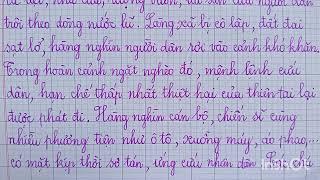 trôi theo dòng nước lũ. Làng xã bị cô lập, đất đai
sạt lở, hàng nghìn người dân rơi vào cảnh khó khăn.
Trong hoàn cảnh ngặt nghèo đó, mệnh lệnh cứu
dân, hạn chế thấp nhất thiệt hại của thiên tai lại
được phát đi. Hàng nghìn cán bộ, chiến sĩ cùng
nhiều phương tiện như ô tô, xuồng máy, áo phao...
có mặt kịp thời sơ tán, ứng cứu nhân dân